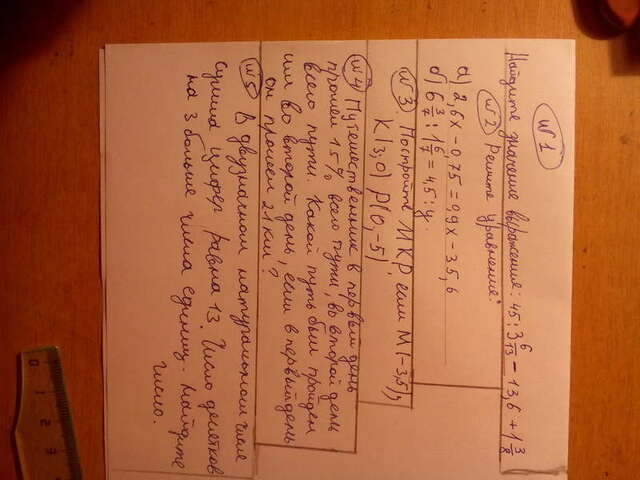 №1
Найдите значение выражения: 45 : 3 6/13 − 13,6 + 1 3/8
№2 Решите уравнение:
а) 2,6x − 0,75 = 0,9x − 35,6
б) 6 3/7 : 1 6/7 = 4,5 : y.
№3. Постройте МКР, если М(−3,5),
К(3,0) Р(0,−5)
№4 Путешественник в первый день
прошел 15% всего пути, во второй день
всего пути. Какой путь был пройден
им во второй день, если в первый день
он прошел 21км?
№5 В двузначном натуральном числе
сумма цифр равна 13. Число десятков
на 3 больше числа единиц. Найдите
число.
0 1 2